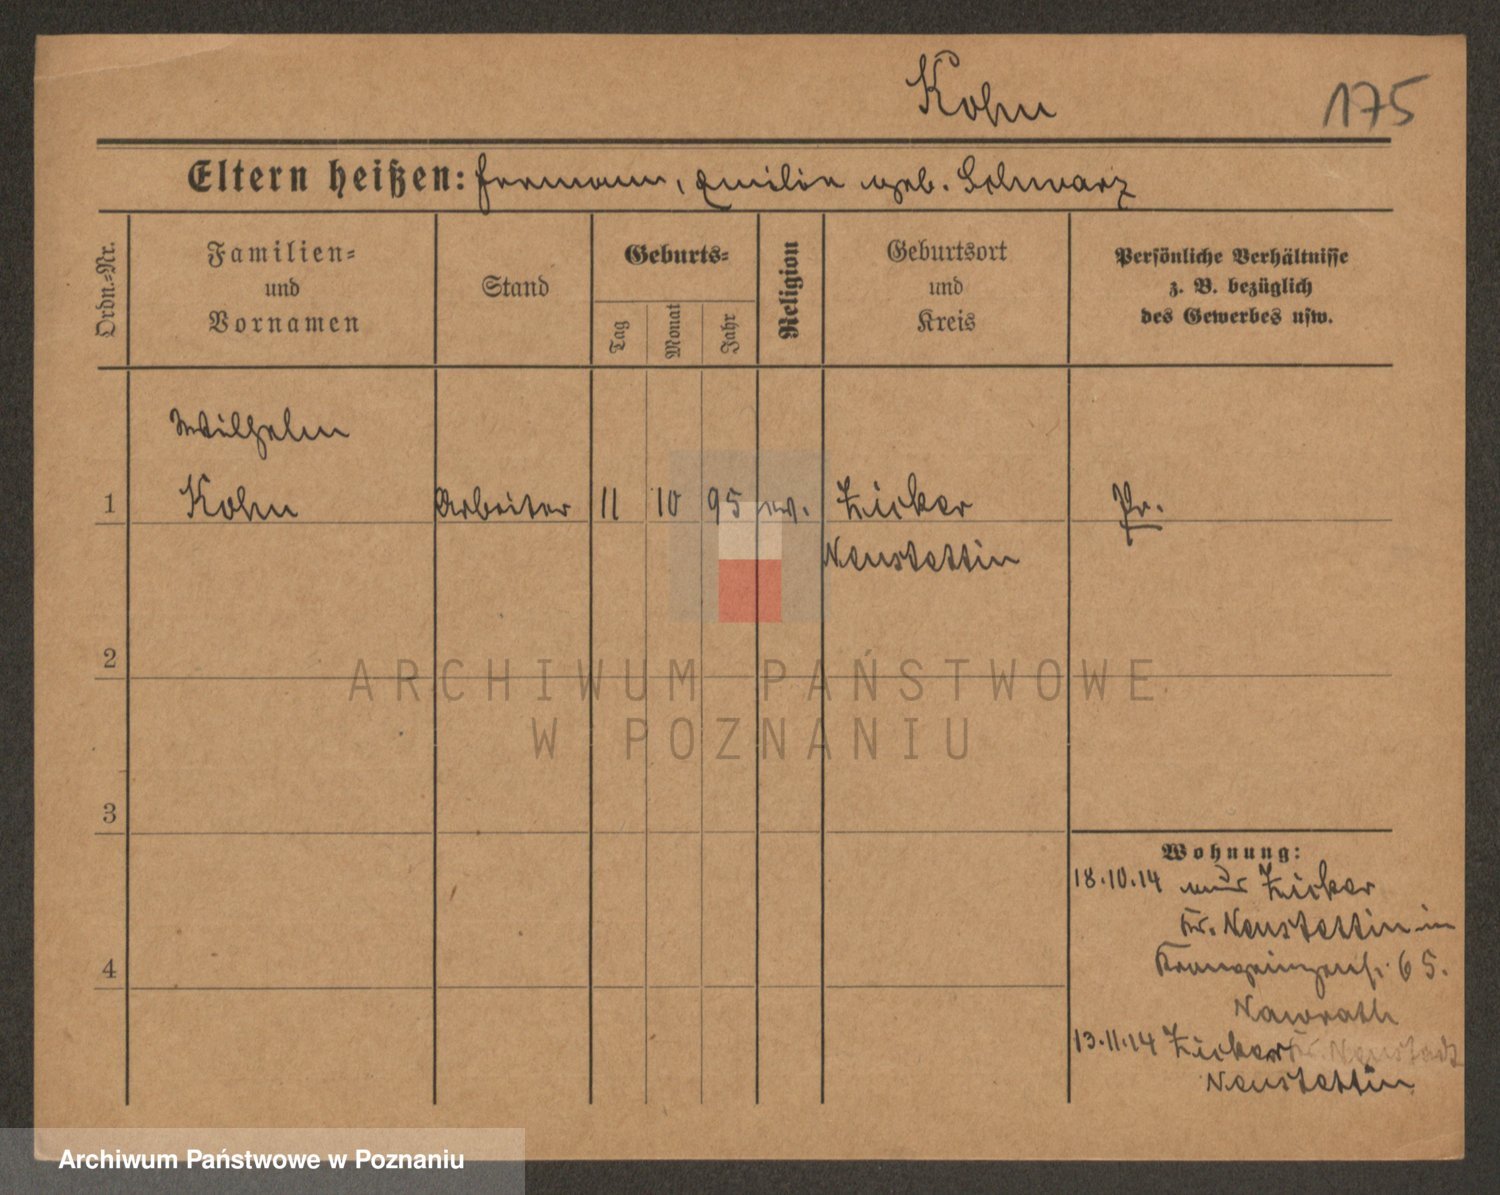 Kohn
175
Eltern heißen: Hermann, Emilie geb. Schwarz
Ordn.-Nr.
Familien-
und
Vornamen
Stand
Geburts-
Tag
Monat
Jahr
Religion
Geburtsort
und
Kreis
Persönliche Verhältnisse
z. B. bezüglich
des Gewerbes usw.
Wilhelm
1 Kohn Arbeiter 11 10 95 ev. Zicker Pr.
Neustettin
2
ARCHIWUM PAŃSTWOWE
W POZNANIU
3
Wohnung:
18.10.14 aus Zicker
Kr. Neustettin in
Kronprinzenst. 65.
4
Nawrath
13.11.14 Zicker Kr. Neustadt
Neustettin
Archiwum Państwowe w Poznaniu